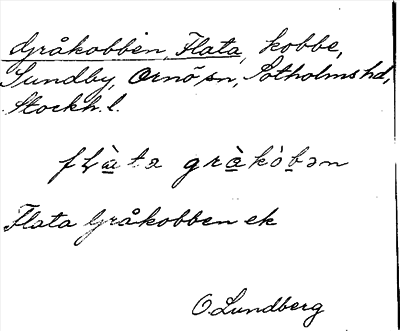 Gråkobben, Flata, kobbe,
Sundby, Ornö sn, Sotholms hd,
Stockh. l.
Flata Gråkobben ek
O. Lundberg